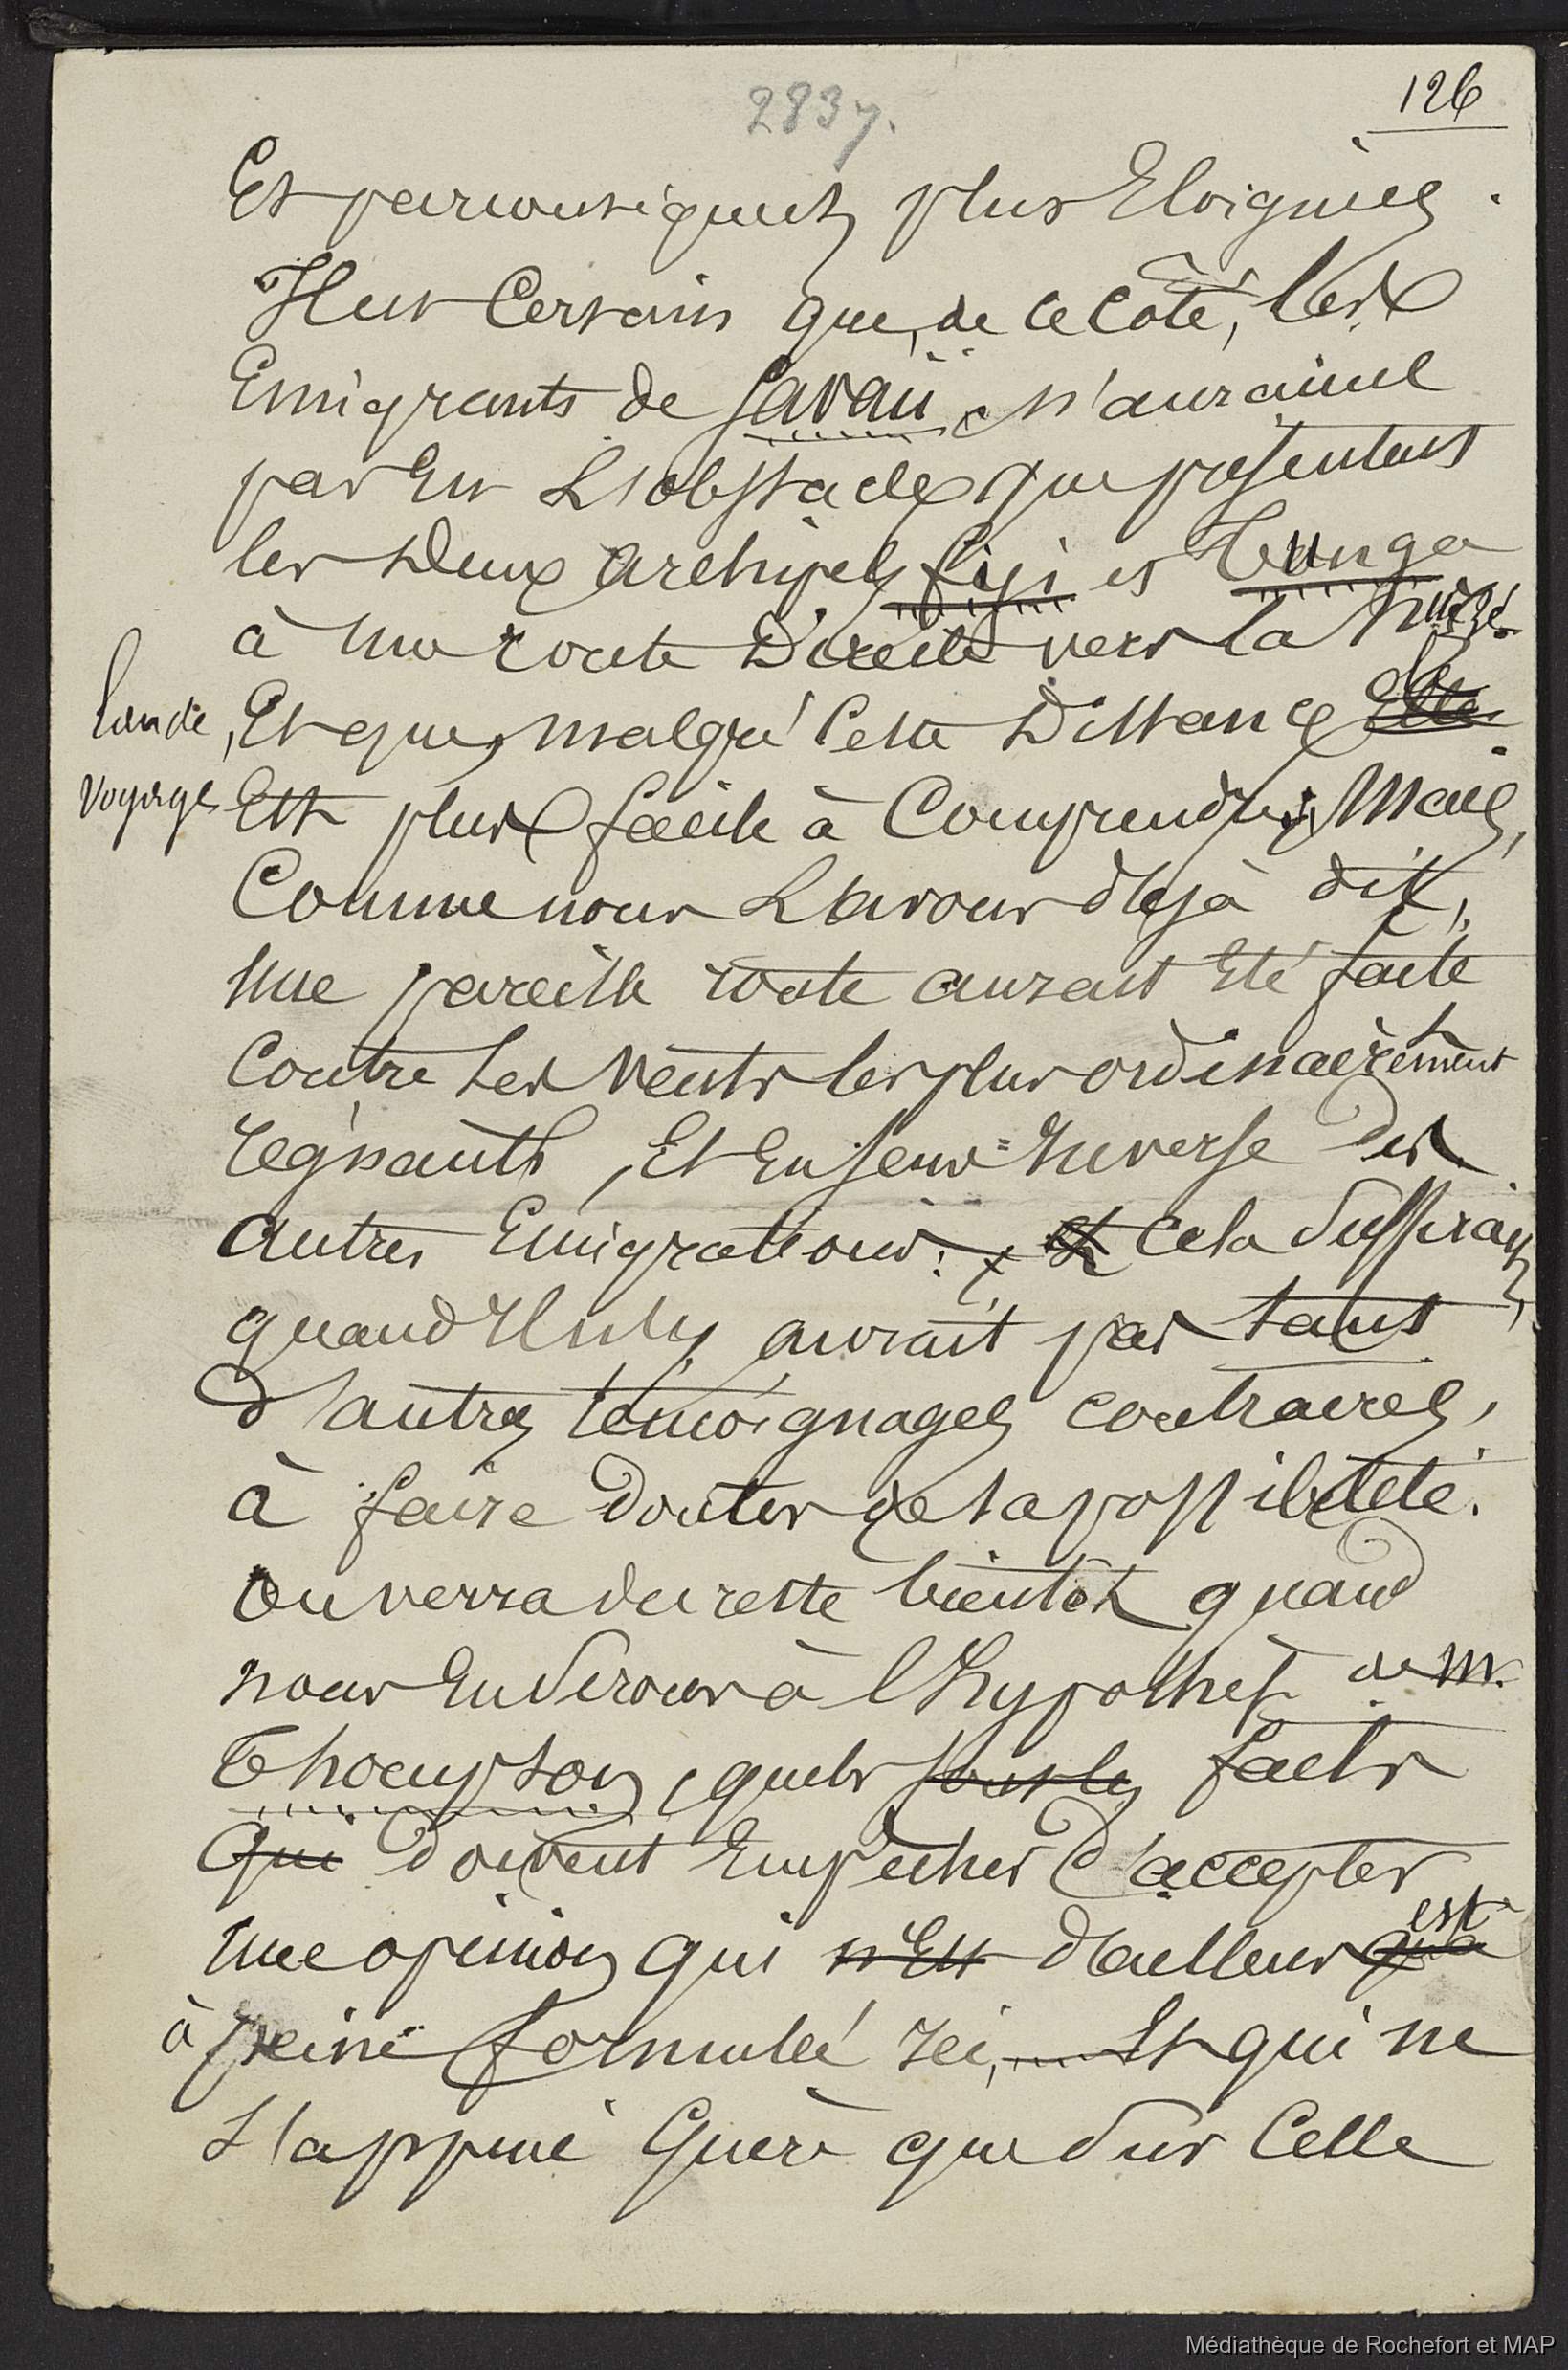 126
2837.
Et par conséquent, plus Eloignées.
Il est Certain que, de ce Côté, les
Emigrants de Savaii, n'auraient
pas Eu L'obstacle que présentent
les Deux archipels Fiji et Tunga
à une route Directe vers la Nlle Zé-
lande, Et que, malgré Cette Distance Elle
voyage Est plus facile à Comprendre; Mais,
Comme nous L'avons déjà dit,
Une pareille route aurait Eté faite
Contre les Vents les plus ordinairement
régnants, Et En sens-Inverse des
autres Emigrations: Et Cela Suffirait,
quand Il n'y aurait pas tant
d'autres témoignages contraires,
à faire douter de sa possibilité.
On verra du reste bientôt quand
nous En Serons à l'hypothèse de Mr.
Thompson, quels sont les faits
qui doivent Empêcher d'accepter
Une opinion qui n'Est d'ailleurs qu'à est
à peine formulée Ici, Et qui ne
S'appuie Guère que Sur Celle
Médiathèque de Rochefort et MAP